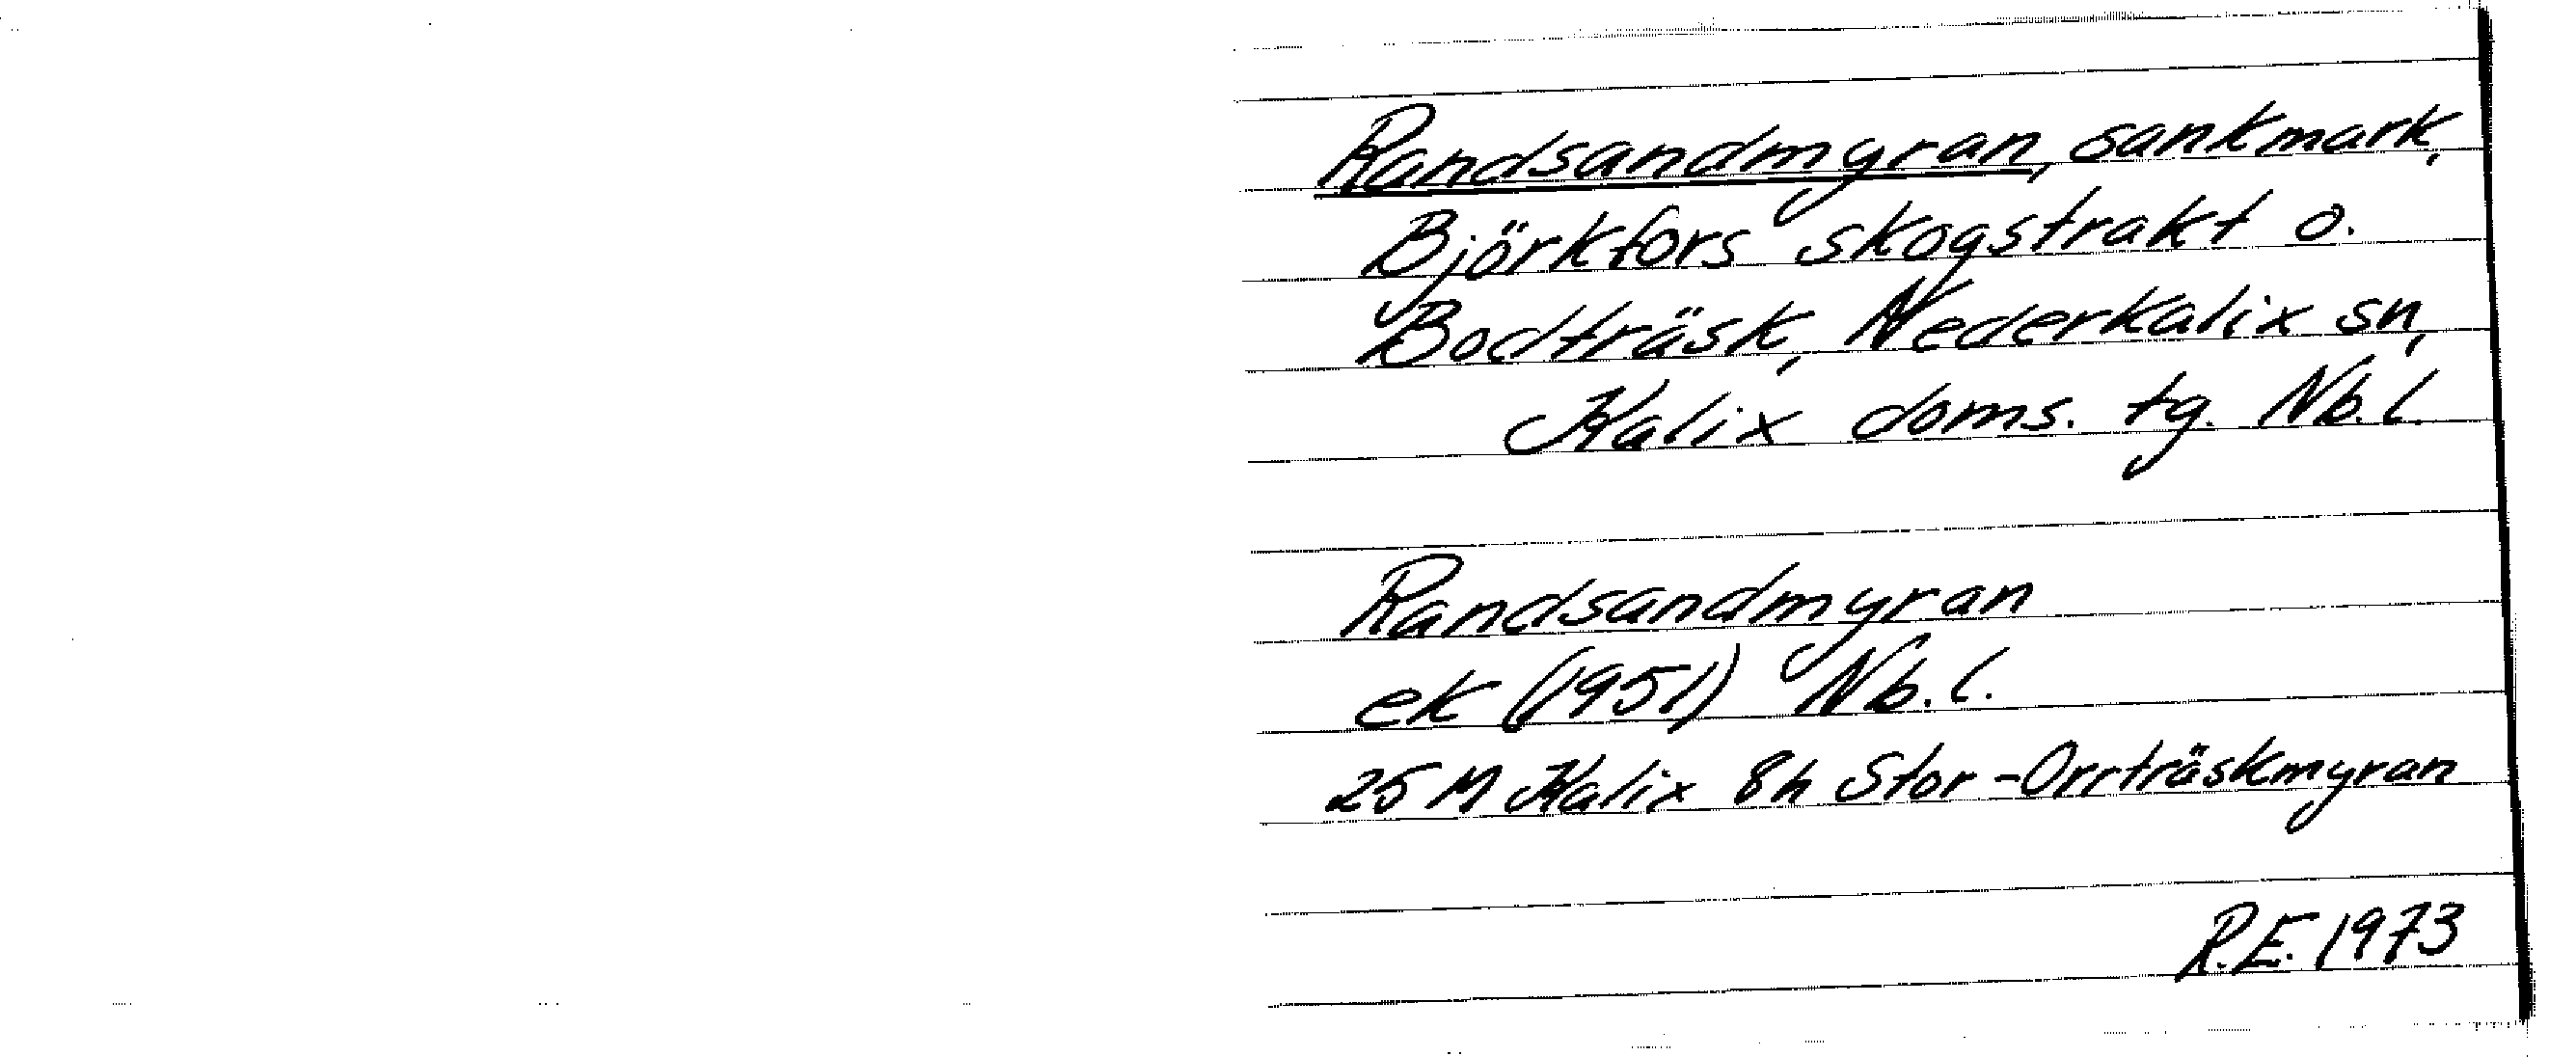 Randsandmyran, sankmark,
Björkfors skogstrakt o.
Bodträsk, Nederkalix sn,
Kalix doms. tg. Nb.l.
Randsandmyran
ek (1951) Nb.l.
25 M Kalix 8h Stor-Orrträskmyran
R.E. 1973